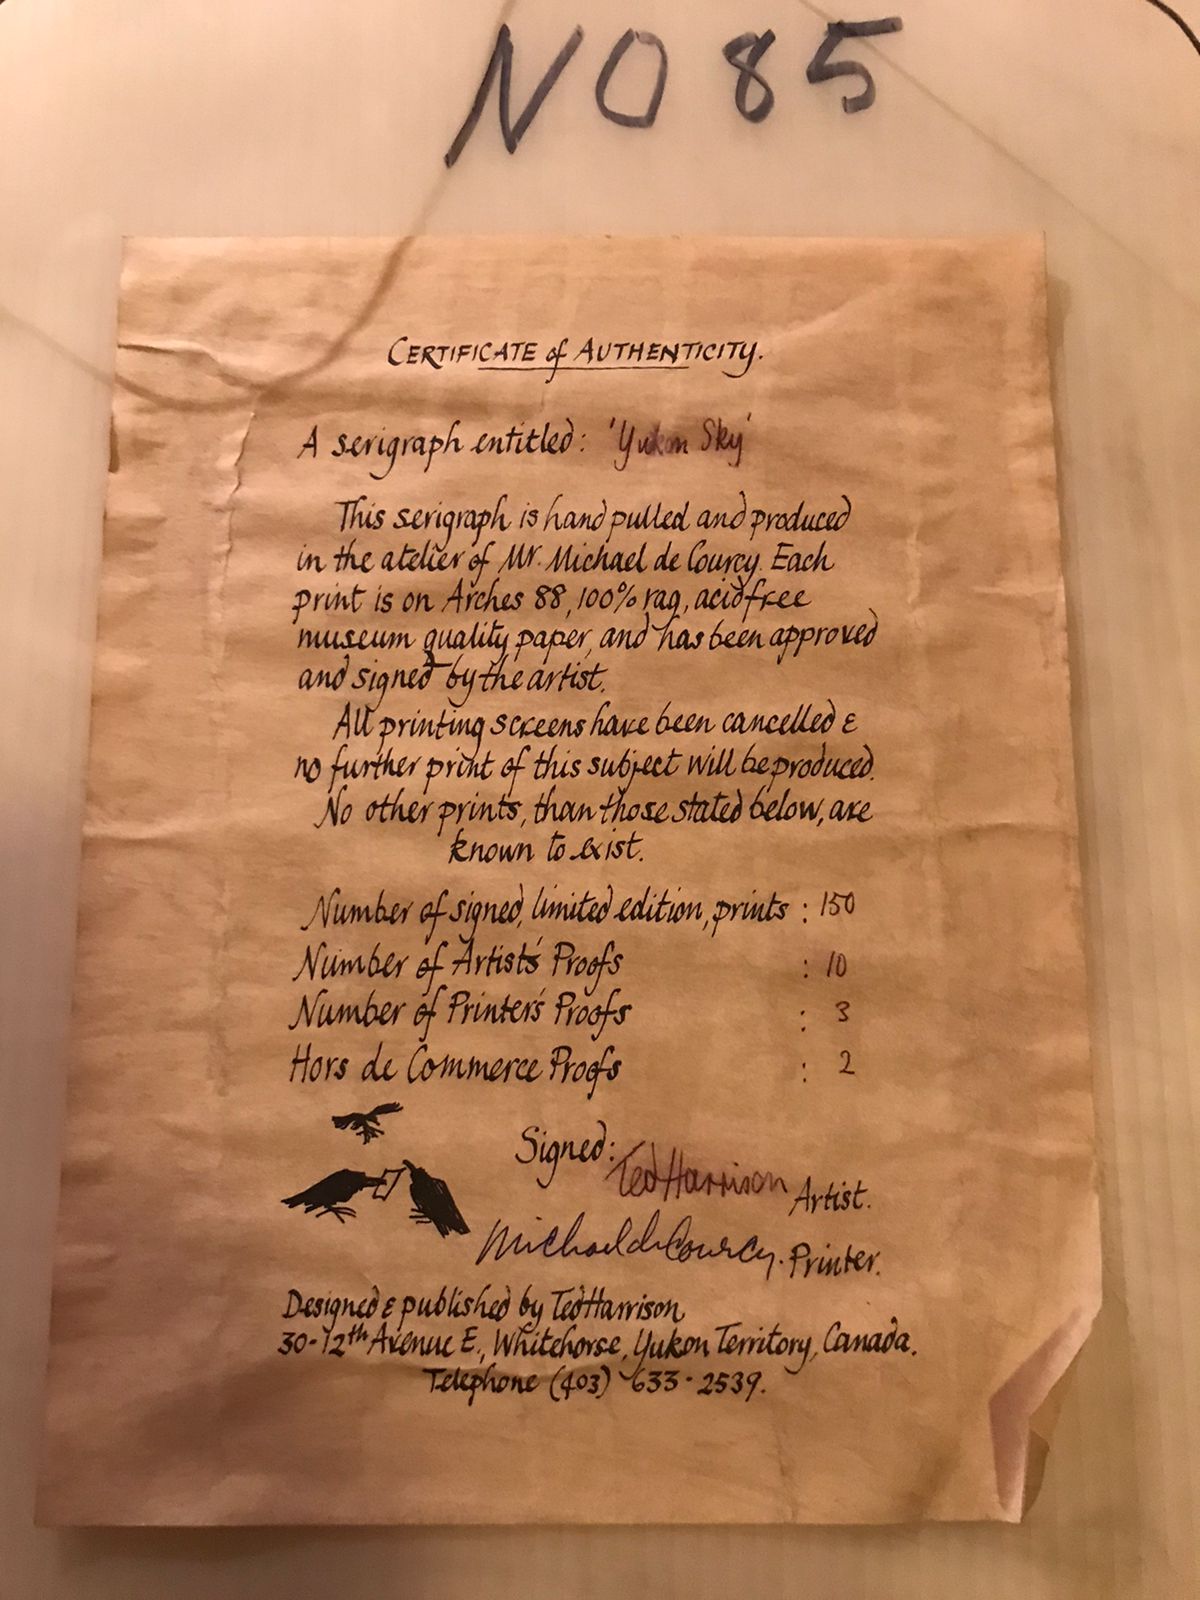 NO 85
CERTIFICATE of AUTHENTICITY.
A serigraph entitled: 'Yukon Sky'
This serigraph is hand pulled and produced
in the atelier of Mr. Michael de Courcy. Each
print is on Arches 88, 100% rag, acid free
museum quality paper, and has been approved
and signed by the artist.
All printing screens have been cancelled &
no further print of this subject will be produced.
No other prints, than those stated below, are
known to exist.
Number of signed, limited edition, prints : 150
Number of Artist's Proofs : 10
Number of Printer's Proofs : 3
Hors de Commerce Proofs : 2
Signed: Ted Harrison Artist.
Michael de Courcy. Printer.
Designed & published by Ted Harrison,
30-12th Avenue E., Whitehorse, Yukon Territory, Canada.
Telephone (403) 633-2539.